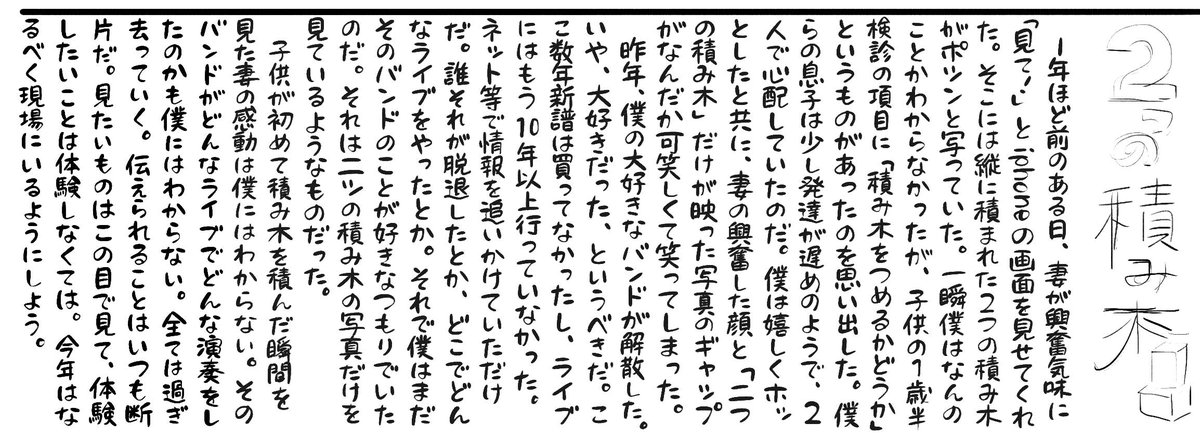 2つの積み木
１年ほど前のある日、妻が興奮気味に
「見て！」とiphoneの画面を見せてくれ
た。そこには縦に積まれた2つの積み木
がポツンと写っていた。一瞬僕はなんの
ことかわからなかったが、子供の1歳半
検診の項目に「積み木をつめるかどうか」
というものがあったのを思い出した。僕
らの息子は少し発達が遅めのようで、2
人で心配していたのだ。僕は嬉しくホッ
としたと共に、妻の興奮した顔と「二つ
の積み木」だけが映った写真のギャップ
がなんだか可笑しくて笑ってしまった。
昨年、僕の大好きなバンドが解散した。
いや、大好きだった、というべきだ。こ
こ数年新譜は買ってなかったし、ライブ
にはもう10年以上行っていなかった。
ネット等で情報を追いかけていただけ
だ。誰それが脱退したとか、どこでどん
なライブをやったとか。それで僕はまだ
そのバンドのことが好きなつもりでいた
のだ。それは二ツの積み木の写真だけを
見ているようなものだった。
子供が初めて積み木を積んだ瞬間を
見た妻の感動は僕にはわからない。その
バンドがどんなライブでどんな演奏をし
たのかも僕にはわからない。全ては過ぎ
去っていく。伝えられることはいつも断
片だ。見たいものはこの目で見て、体験
したいことは体験しなくては。今年はな
るべく現場にいるようにしよう。